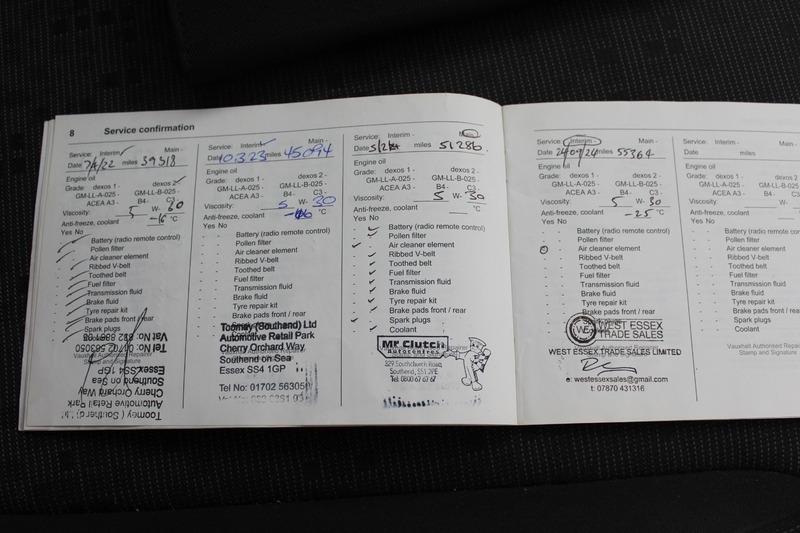 8 Service confirmation
Service: Interim - Main -
Date 7/4/22 miles 39318
Engine oil
Grade: dexos 1 - dexos 2 -
GM-LL-A-025 - GM-LL-B-025 -
ACEA A3 - B4 - C3 -
Viscosity: 5 W- 30
Anti-freeze, coolant -16 °C
Yes No
Battery (radio remote control)
Pollen filter
Air cleaner element
Ribbed V-belt
Toothed belt
Fuel filter
Transmission fluid
Brake fluid
Tyre repair kit
Brake pads front / rear
Spark plugs
Vauxhall Authorised Repairer
Stamp and Signature
Toomey (Southend) Ltd
Automotive Retail Park
Cherry Orchard Way
Southend on Sea
Essex SS4 1GP
Tel No: 01702 563050
Service: Interim - Main -
Date 10.3.23 miles 45094
Engine oil
Grade: dexos 1 - dexos 2 -
GM-LL-A-025 - GM-LL-B-025 -
ACEA A3 - B4 - C3 -
Viscosity: 5 W- 30
Anti-freeze, coolant °C
Yes No
Battery (radio remote control)
Pollen filter
Air cleaner element
Ribbed V-belt
Toothed belt
Fuel filter
Transmission fluid
Brake fluid
Tyre repair kit
Brake pads front / rear
Spark plugs
Toomey (Southend) Ltd
Automotive Retail Park
Cherry Orchard Way
Southend on Sea
Essex SS4 1GP
Tel No: 01702 563050
Service: Interim - Main -
Date miles 51286
Engine oil
Grade: dexos 1 - dexos 2 -
GM-LL-A-025 - GM-LL-B-025 -
ACEA A3 - B4 - C3 -
Viscosity: 5 W- 30
Anti-freeze, coolant °C
Yes No
Battery (radio remote control)
Pollen filter
Air cleaner element
Ribbed V-belt
Toothed belt
Fuel filter
Transmission fluid
Brake fluid
Tyre repair kit
Brake pads front / rear
Spark plugs
Coolant
Mr Clutch
Autocentres
329 Southchurch Road,
Southend, SS1 2PE
Tel: 0800 67 67 67
Service: Interim - Main -
Date 24/09/24 miles 55364
Engine oil
Grade: dexos 1 - dexos 2 -
GM-LL-A-025 - GM-LL-B-025 -
ACEA A3 - B4 - C3 -
Viscosity: 5 W- 30
Anti-freeze, coolant -25 °C
Yes No
Battery (radio remote control)
Pollen filter
Air cleaner element
Ribbed V-belt
Toothed belt
Fuel filter
Transmission fluid
Brake fluid
Tyre repair kit
Brake pads front / rear
Spark plugs
WE WEST ESSEX
TRADE SALES
WEST ESSEX TRADE SALES LIMITED
e: westessexsales@gmail.com
t: 07870 431316
Service: Interim -
Date miles
Engine oil
Grade: dexos 1 -
GM-LL-A-025 -
ACEA A3 -
Viscosity:
Anti-freeze, coolant
Yes No
Battery (radio remote
Pollen filter
Air cleaner element
Ribbed V-belt
Toothed belt
Fuel filter
Transmission fluid
Brake fluid
Tyre repair kit
Brake pads front / rear
Spark plugs
Coolant
Vauxhall Authorised Repairer
Stamp and Signature